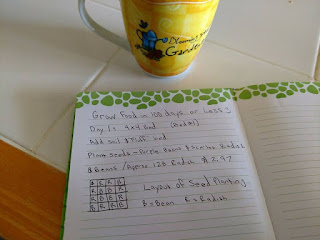 Garden
Grow Food in 100 days or Less
Day 1: 4x4 bed
Add soil & fluff bed
Plant Seeds - Purple Beans & Radish
8 Beans / Approx 128 Radish $2.97
B R R B
R B B R
R B B R
B R R B
Layout of Seed Planting
B = Bean R = Radish